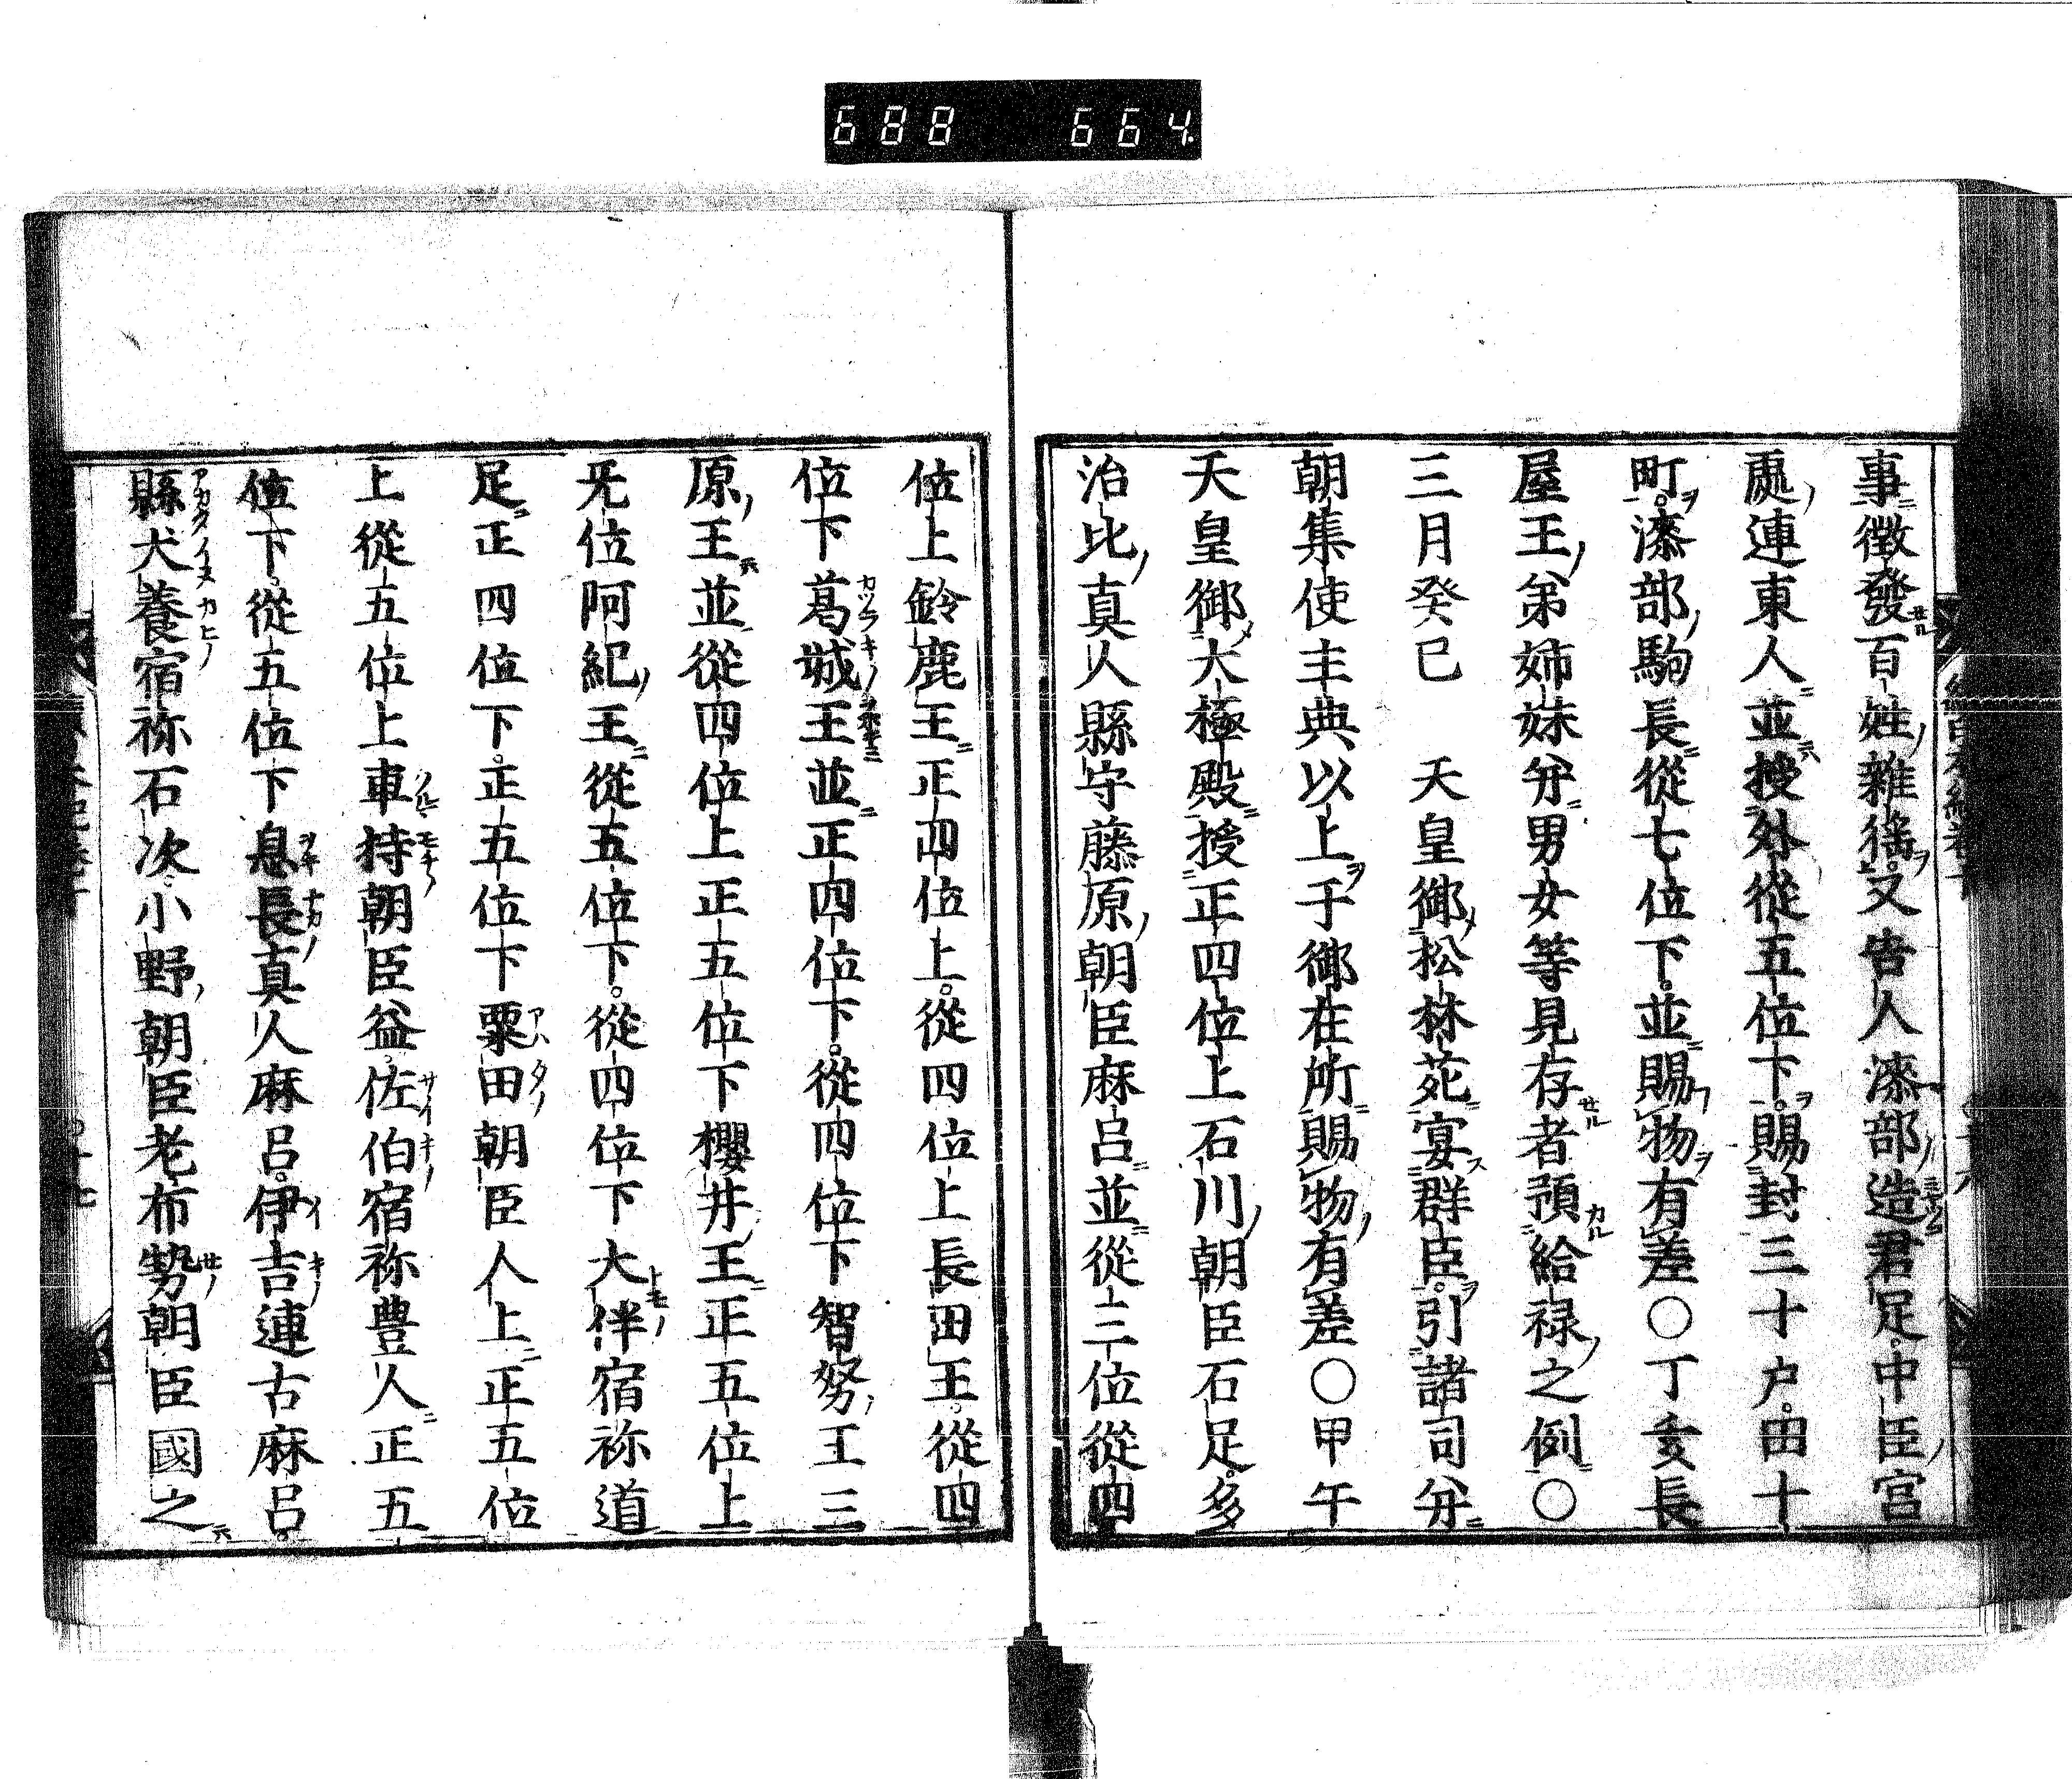 688 664
事徵發百姓雜徭又告人漆部造君足中臣宮
處連東人並授外從五位下賜封三十戶田十
町漆部駒長從七位下並賜物有差〇丁亥長
屋王弟姉妹并男女等見存者預給禄之例〇
三月癸巳 天皇御松林苑宴群臣引諸司并
朝集使主典以上于御在所賜物有差〇甲午
天皇御大極殿授正四位上石川朝臣石足多
治比真人縣守藤原朝臣麻呂並從三位從四
位上鈴鹿王正四位上從四位上長田王從四
位下葛城王並正四位下從四位下智努王三
原王並從四位上正五位下櫻井王正五位上
无位阿紀王從五位下從四位下大伴宿祢道
足正四位下正五位下粟田朝臣人上正五位
上從五位上車持朝臣益佐伯宿祢豊人正五
位下從五位下息長真人麻呂伊吉連古麻呂
縣犬養宿祢石次小野朝臣老布勢朝臣國之